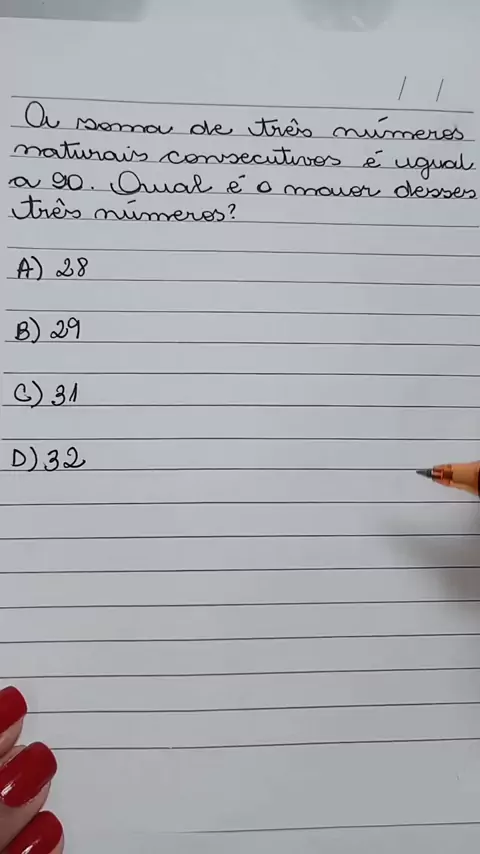 A soma de três números
naturais consecutivos é igual
a 90. Qual é o maior desses
três números?
A) 28
B) 29
C) 31
D) 32